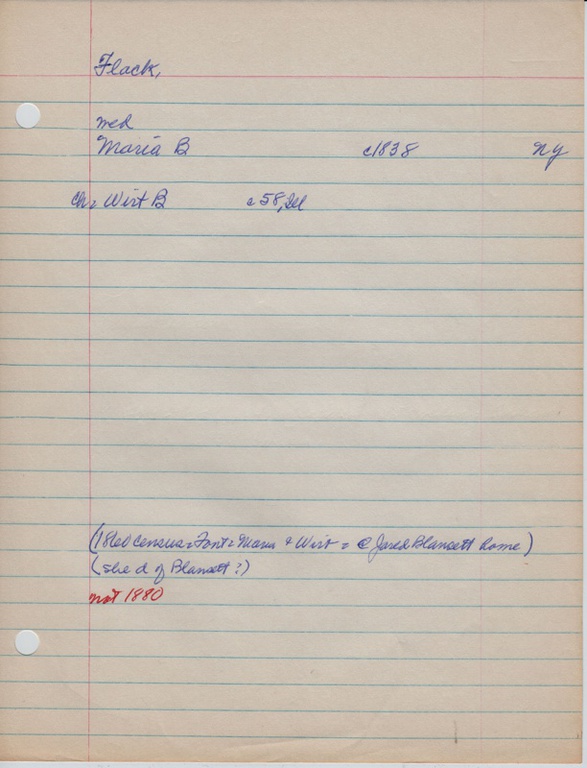 Flack,
med
Maria B c1838 NY
ch = Wirt B c58, Ill
(1860 census = Font = Maria & Wirt = @ Jared Blansett home)
(she d of Blansett?)
not 1880